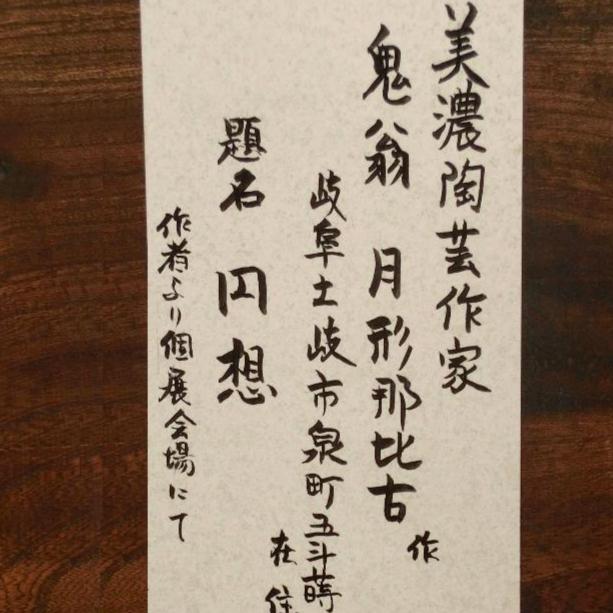 美濃陶芸作家
鬼翁 月形那比古 作
岐阜土岐市泉町五斗蒔
在住
題名 円想
作者より個展会場にて